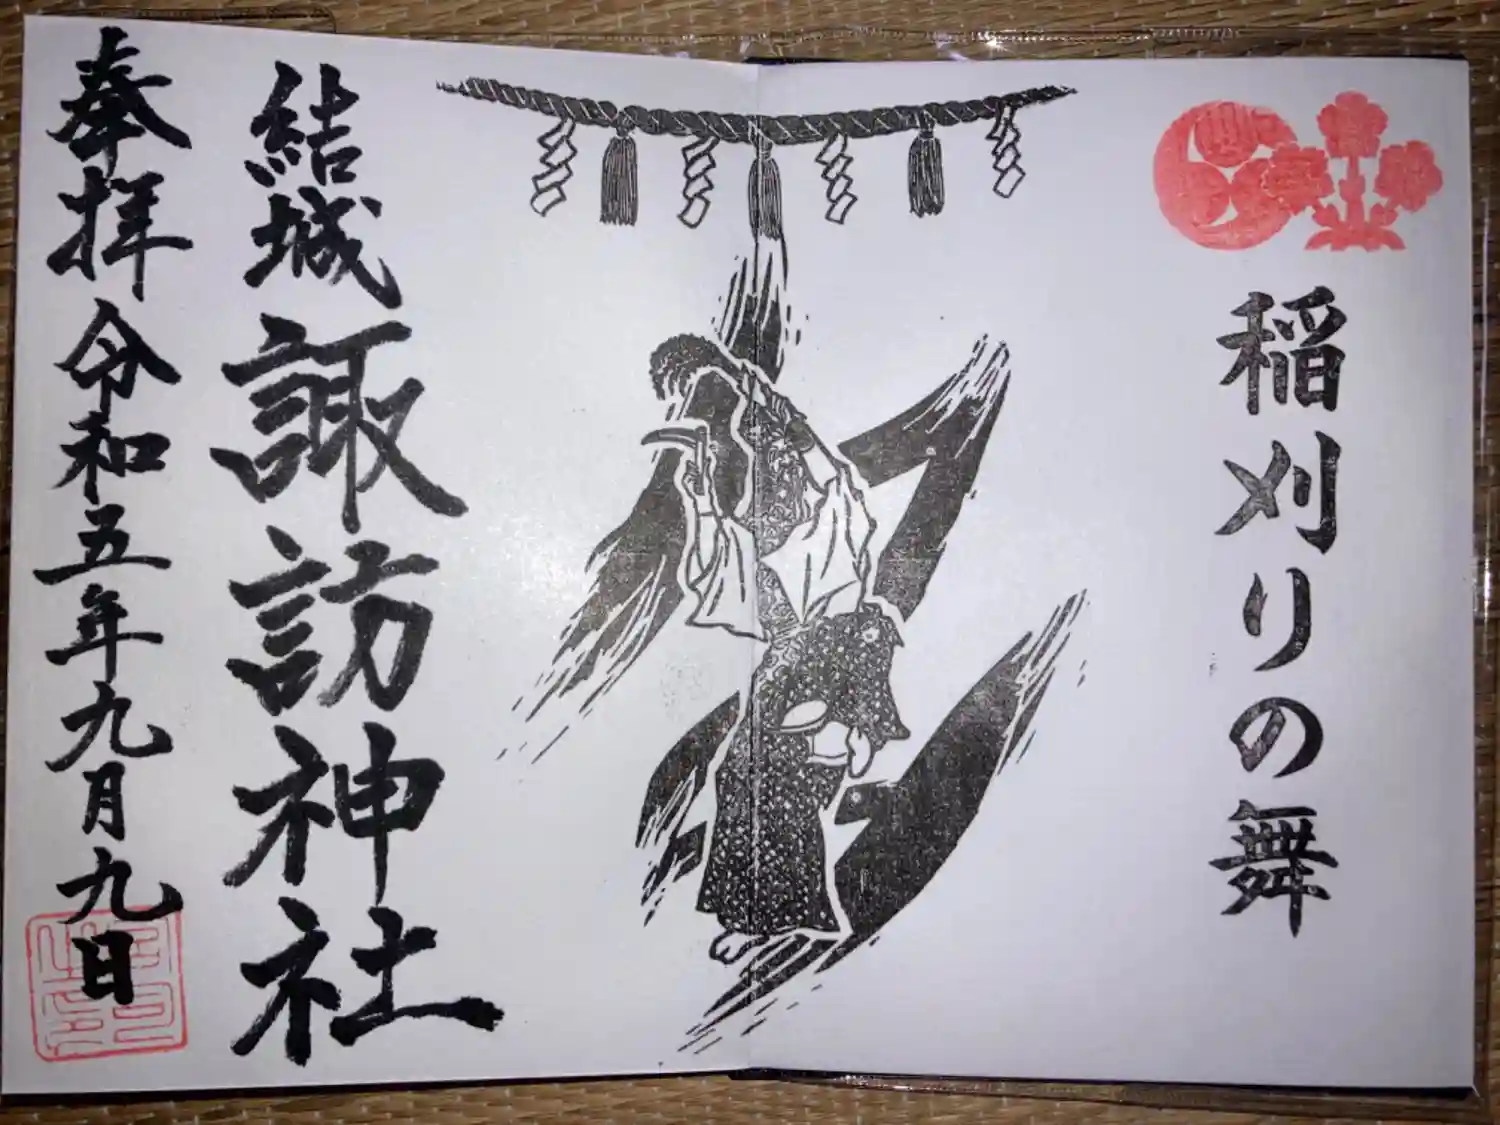 稲刈りの舞
結城諏訪神社
奉拝令和五年九月九日